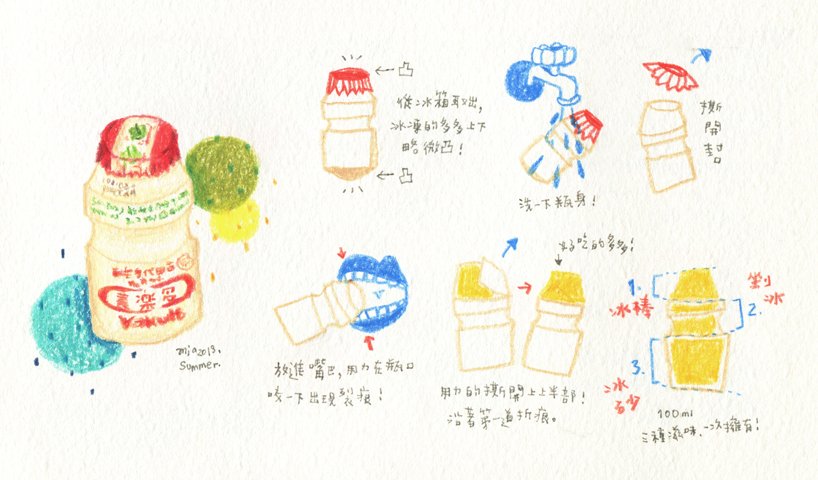 mia2013.
Summer.
凸
從冰箱取出,
冰凍的多多上下
略微凸!
凸
洗一下瓶身!
撕
開
封
放進嘴巴,用力在瓶口
咬一下出現裂痕!
好吃的多多!
用力的撕開上上半部!
沿著第一道折痕。
1.
冰棒
剉
冰
2.
3.
冰
多多
100ml
三種滋味,一次擁有!